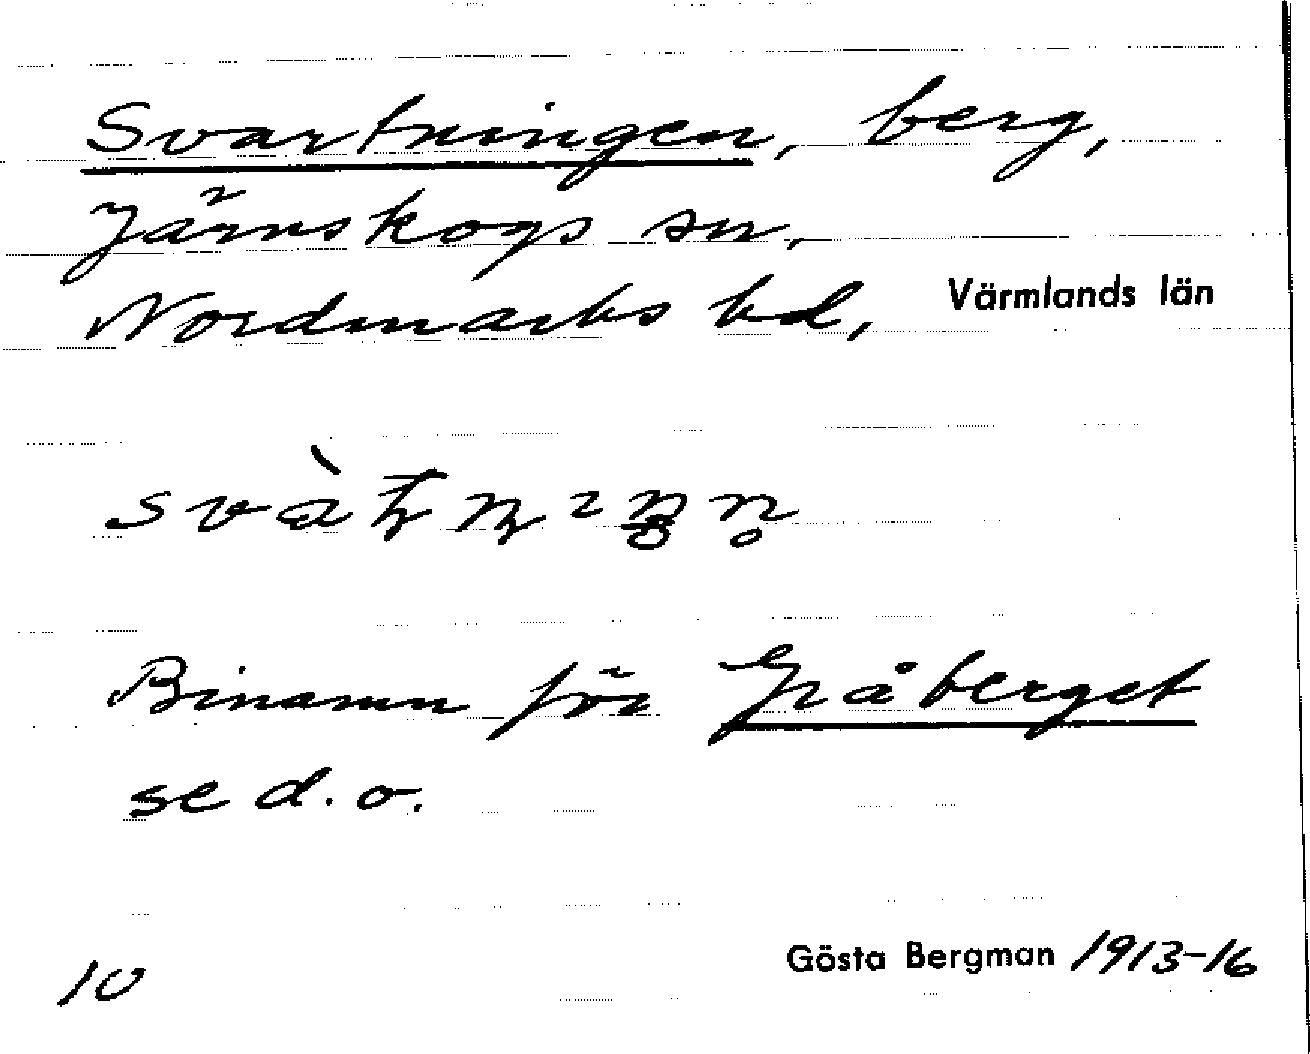 Svartningen, berg,
Järnskogs sn,
Nordmarks hd, Värmlands län
Binamn för Gråberget
se d.o.
10
Gösta Bergman 1913-16